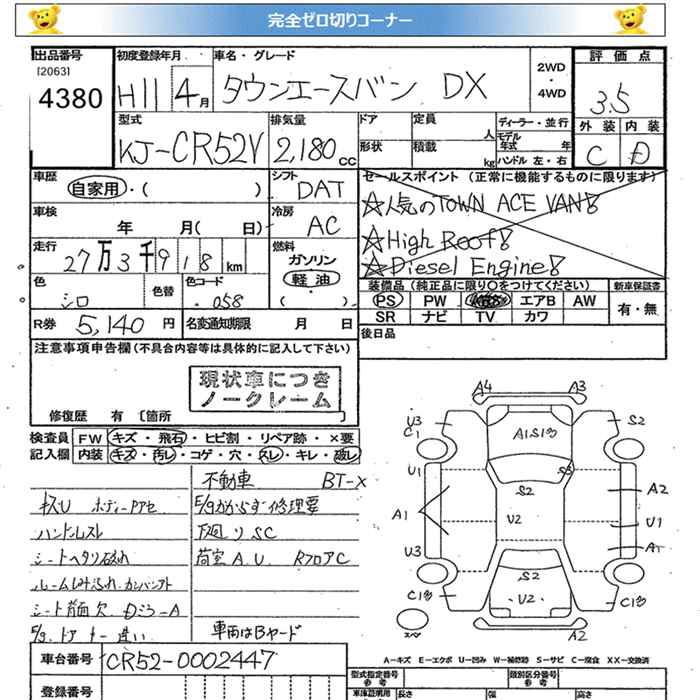 完全ゼロ切りコーナー
出品番号
[2063]
4380
初度登録年月
H11 4月
車名・グレード
タウンエースバン DX
2WD
・
4WD
評価点
3.5
外装 内装
C D
型式
KJ-CR52V
排気量
2,180 cc
ドア
定員
人
形状
積載
kg
ディーラー・並行
モデル
年式 年
ハンドル 左・右
車歴
自家用・( )
シフト
DAT
セールスポイント (正常に機能するものに限ります)
☆人気のTOWN ACE VAN!
☆High Roof!
☆Diesel Engine!
車検
年 月( 日)
冷房
AC
走行
27万3千918km
燃料
ガソリン
軽油
( )
色
シロ
色替
色コード
058
装備品 (純正品に限り○をつけてください)
新車保証書
PS PW エアB AW
SR ナビ TV カワ
有・無
R券 5,140円
名変通知期限 月 日
後日品
注意事項申告欄 (不具合内容等は具体的に記入して下さい)
現状車につき
ノークレーム
修復歴 有 〔箇所
検査員
記入欄
FW キズ・飛石・ヒビ割・リペア跡・×要
内装 キズ・汚レ・コゲ・穴・スレ・キレ・破レ
不動車 BT-X
キズU ボディーPアセ
ハンドルスレ
下廻りSC
シートヘタリ破れ
荷室A.U RフロアC
車両はBヤード
A4 A3
U3 C1 S2
A1S1
S3
U1 S2 A2
A1 U2 U1
U3 A1
S2
C1 U2 C1
A2
スペア
A－キズ E－エクボ U－凹み W－補修跡 S－サビ C－腐食 XX－交換済
車台番号 CR52-0002447
登録番号
型式指定番号
参考
類別区分番号
参考
車庫証明用
長さ 幅 高さ